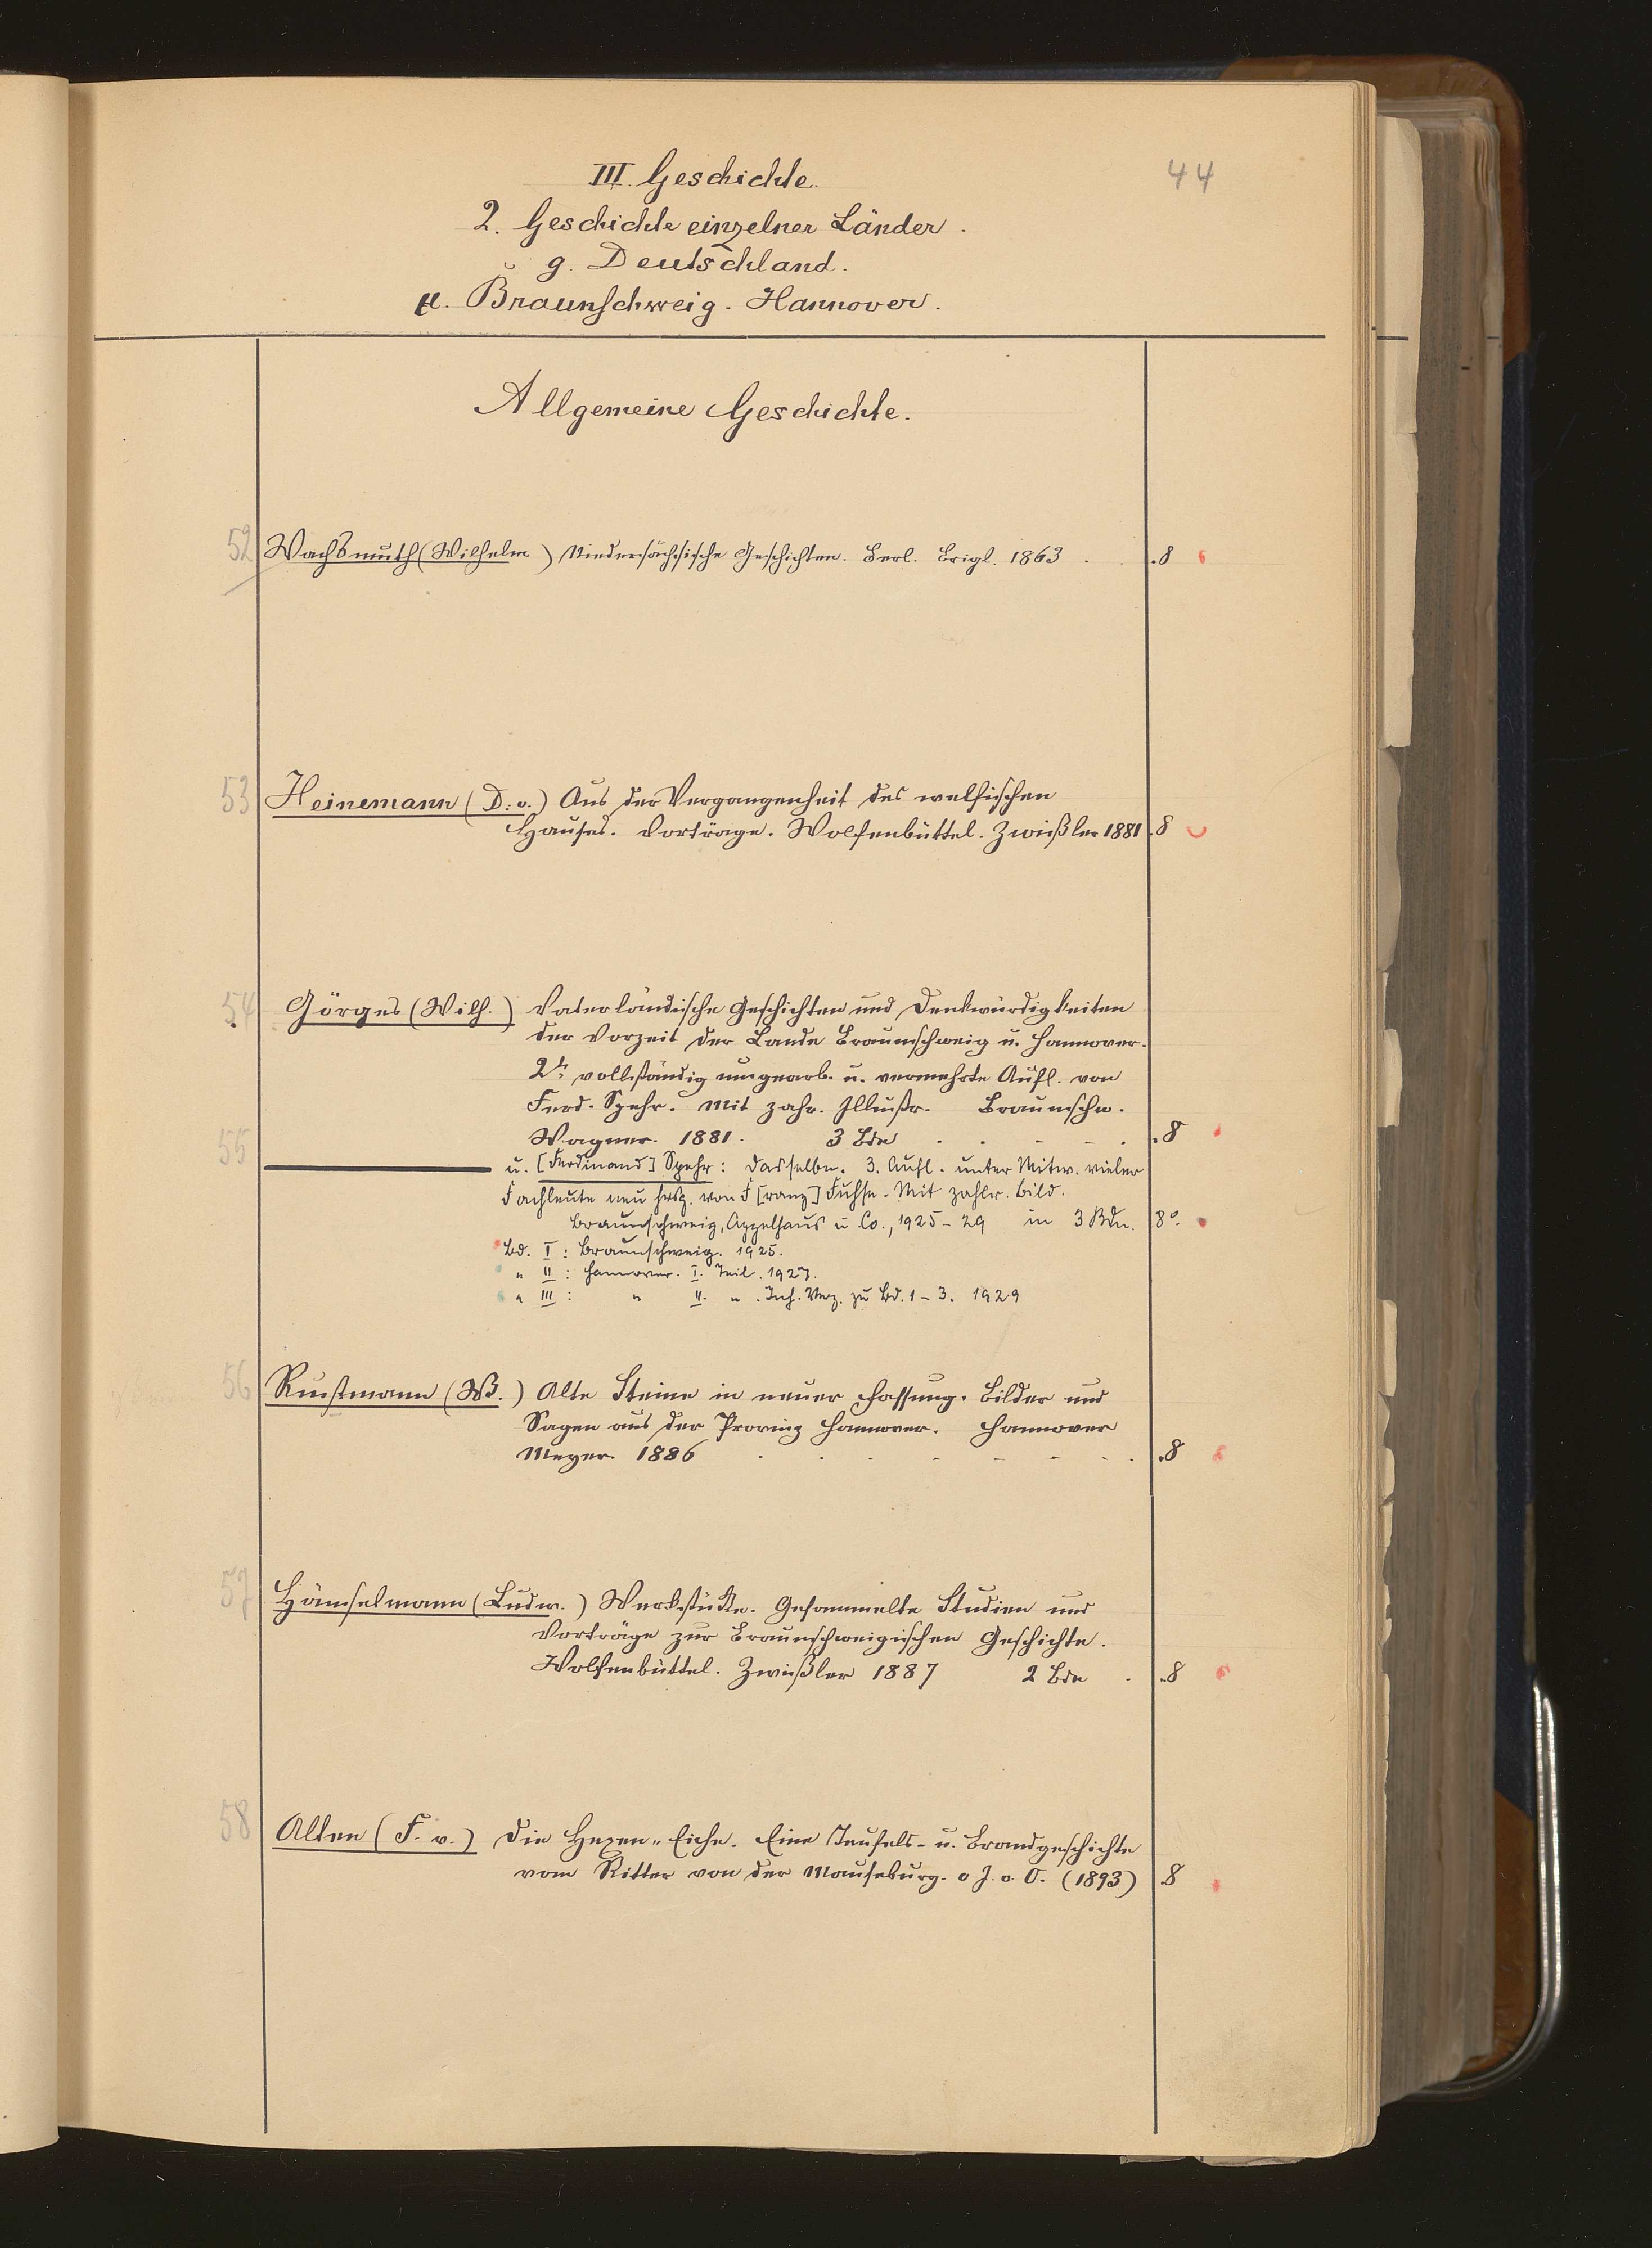 44
III. Geschichte.
2. Geschichte einzelner Länder.
g. Deutschland.
μ. Braunschweig. Hannover.
Allgemeine Geschichte.
52 Wachsmuth (Wilhelm) Niedersächsische Geschichten. Berl. Brigl. 1863 . . .8
53 Heinemann (O. v.) Aus der Vergangenheit des welfischen
Hauses. Vorträge. Wolfenbüttel. Zwißler 1881 .8
54 Görges (Wilh.) Vaterländische Geschichten und Denkwürdigkeiten
der Vorzeit der Lande Braunschweig u. Hannover.
2te vollständig umgearb. u. vermehrte Aufl. von
Ferd. Spehr. Mit zahr. Illustr. Braunschw.
Wagner. 1881. 3 Bde . . - - . .8
55 u. [Ferdinand] Spehr: Dasselbe. 3. Aufl. unter Mitw. vieler
Fachleute neu hrsg. von F[ranz] Fuhse. Mit zahlr. Bild.
Braunschweig, Appelhaus u. Co., 1925-29 in 3 Bdn. 8°.
Bd. I: Braunschweig. 1925.
" II: Hannover. I. Teil. 1927.
" III: " II. " . Inh. Verz. zu Bd. 1-3. 1929
56 Kunstmann (W.) Alte Steine in neuer Fassung. Bilder und
Sagen aus der Provinz Hannover. Hannover
Meyer. 1886 . . . - - - . . .8
57 Hänselmann (Ludw.) Werkstücke. Gesammelte Studien und
Vorträge zur Braunschweigischen Geschichte.
Wolfenbüttel. Zwißler 1887 2 Bde . .8
58 Alten (F. v.) Die Hexen-Eiche. Eine Teufels- u. Brandgeschichte
vom Ritter von der Mauseburg. o J. o. O. (1893) .8